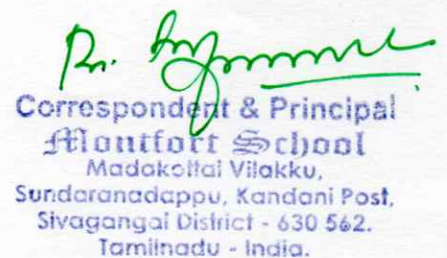 Correspondent & Principal
Montfort School
Madakottai Vilakku,
Sundaranadappu, Kandani Post,
Sivagangai District - 630 562.
Tamilnadu - India.